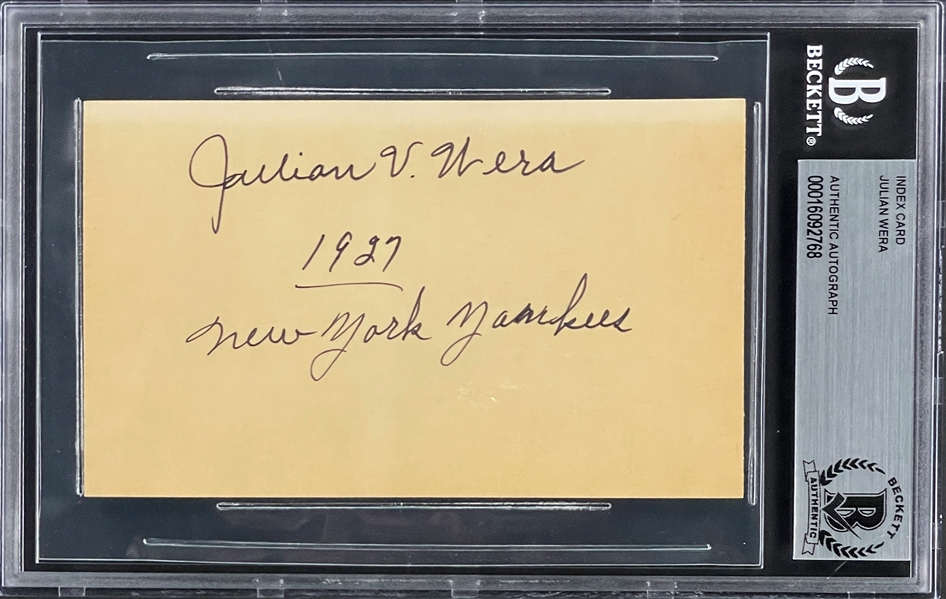 Julian V. Wera
1927
New York Yankees
B
BECKETT®
INDEX CARD
JULIAN WERA
AUTHENTIC AUTOGRAPH
00016092768
BECKETT
AUTHENTIC